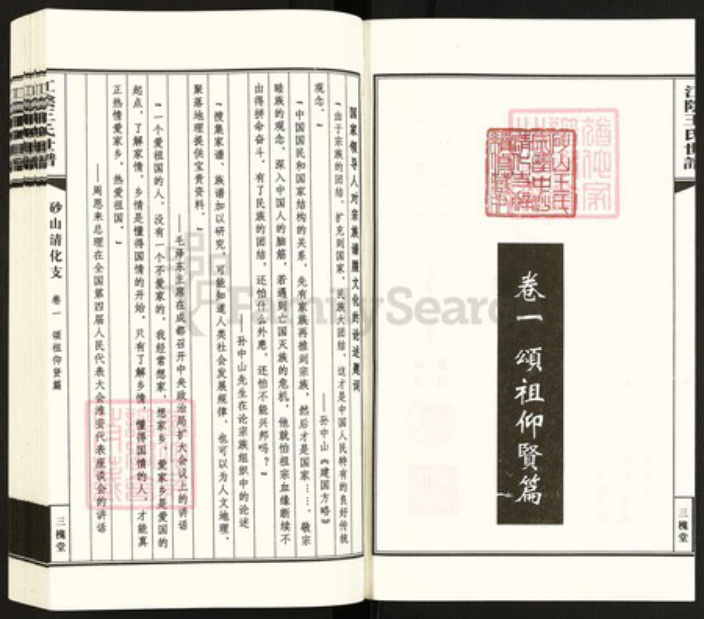 江陰王氏世譜
卷一 頌祖仰賢篇
三槐堂
国家领导人对宗族谱牒文化的论述题词
“由于宗族的团结，扩充到国家、民族大团结，这才是中国人民特有的良好传统
观念。”
——孙中山《建国方略》
“中国国民和国家结构的关系，先有家族再推到宗族，然后才是国家……，敬宗
睦族的观念，深入中国人的脑筋，若遇到亡国灭族的危机，他就怕祖宗血缘断续不
由得拼命奋斗。有了民族的团结，还怕什么外患，还怕不能兴邦吗？”
——孙中山先生在论宗族组织中的论述
“搜集家谱、族谱加以研究，可能知道人类社会发展规律，也可以为人文地理、
聚落地理提供宝贵资料。”
——毛泽东主席在成都召开中央政治局扩大会议上的讲话
“一个爱祖国的人，没有一个不爱家的，我经常想家，想家乡，爱家乡是爱国的
起点，了解家情、乡情是懂得国情的开始，只有了解乡情，懂得国情的人，才能真
正热情爱家乡、热爱祖国。”
——周恩来总理在全国第四届人民代表大会淮安代表座谈会的讲话
江陰王氏世譜
砂山清化支
卷一 頌祖仰賢篇
三槐堂
FamilySearch